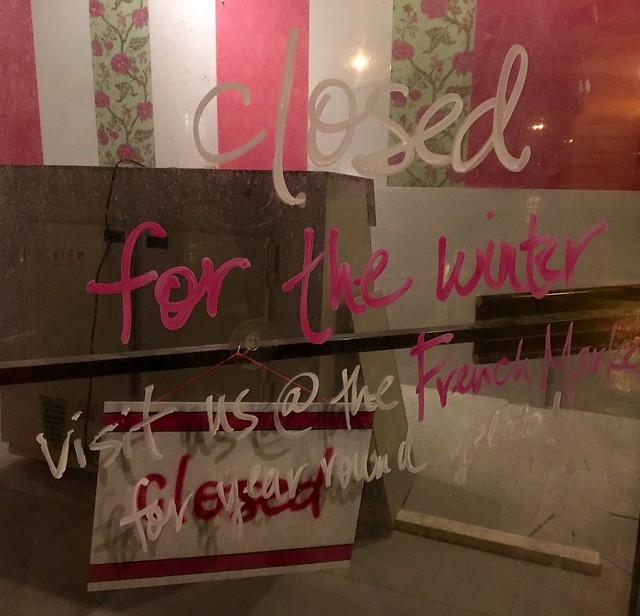 closed
for the winter
visit us @ the French Marke
for year round gelato!
closed